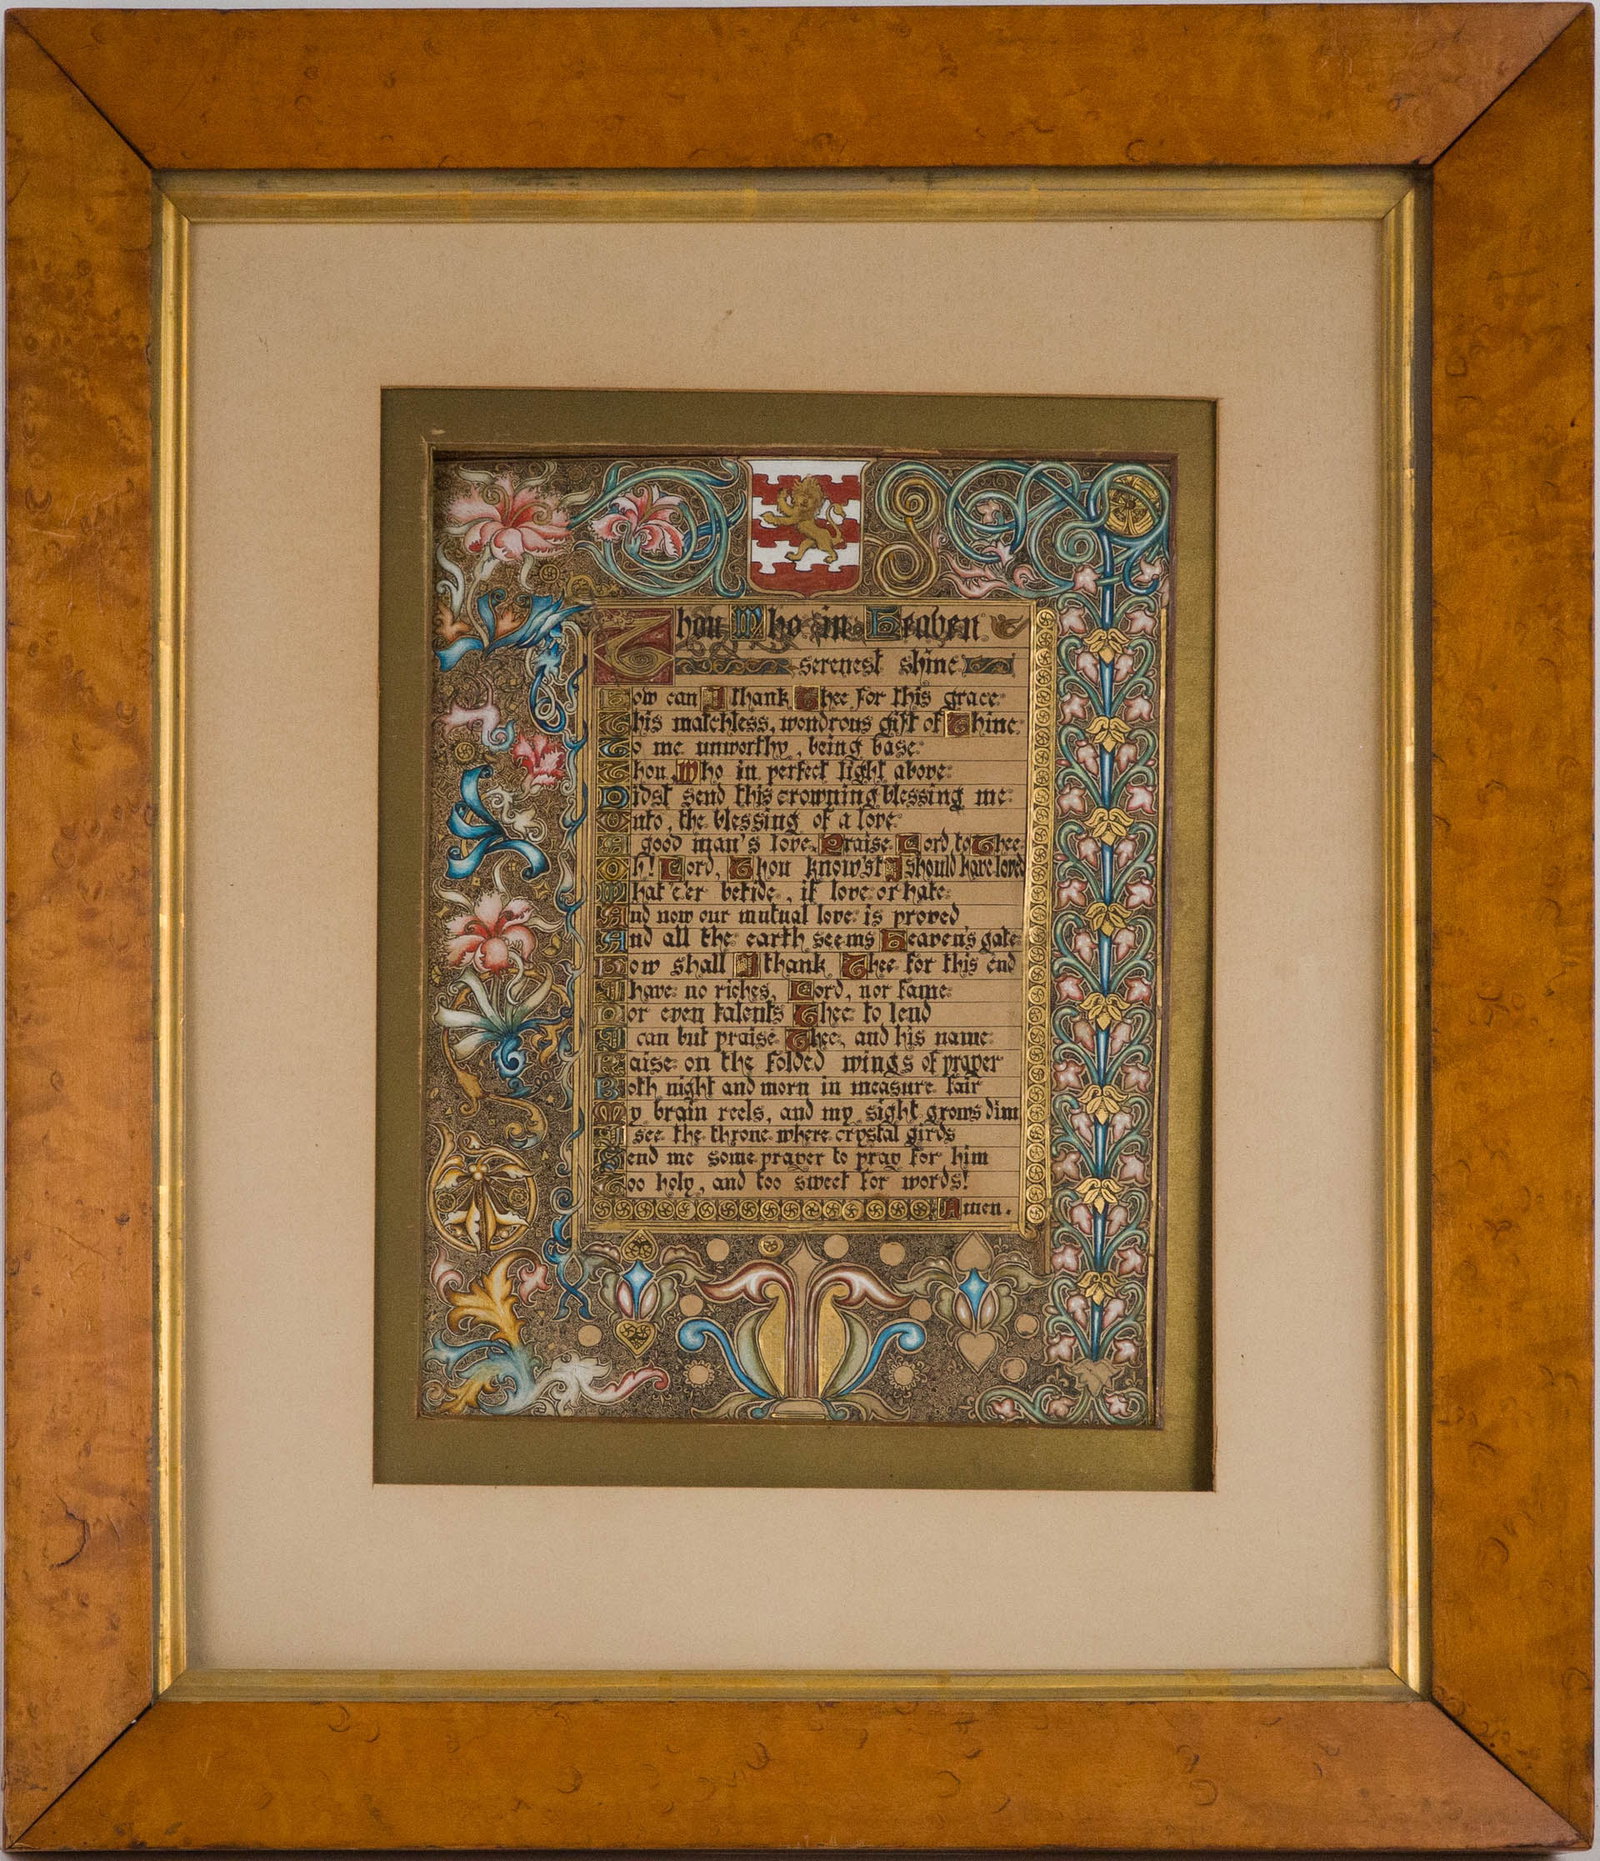 Thou Who in Heaven
serenest shine
How can I thank Thee for this grace
This matchless, wondrous gift of Thine
To me unworthy, being base
Thou Who in perfect light above
Didst send this crowning blessing me
Unto, the blessing of a love
A good man's love. Praise Lord, to Thee
Oh! Lord, Thou know'st I should have loved
What e'er betide, if love or hate
And now our mutual love is proved
And all the earth seems Heaven's gate
How shall I thank Thee for this end
I have no riches, Lord, nor fame
Nor even talents Thee to lend
I can but praise Thee, and his name
Raise on the folded wings of prayer
Both night and morn in measure fair
My brain reels, and my sight grows dim
I see the throne where crystal girds
Send me some prayer to pray for him
Too holy, and too sweet for words!
Amen.